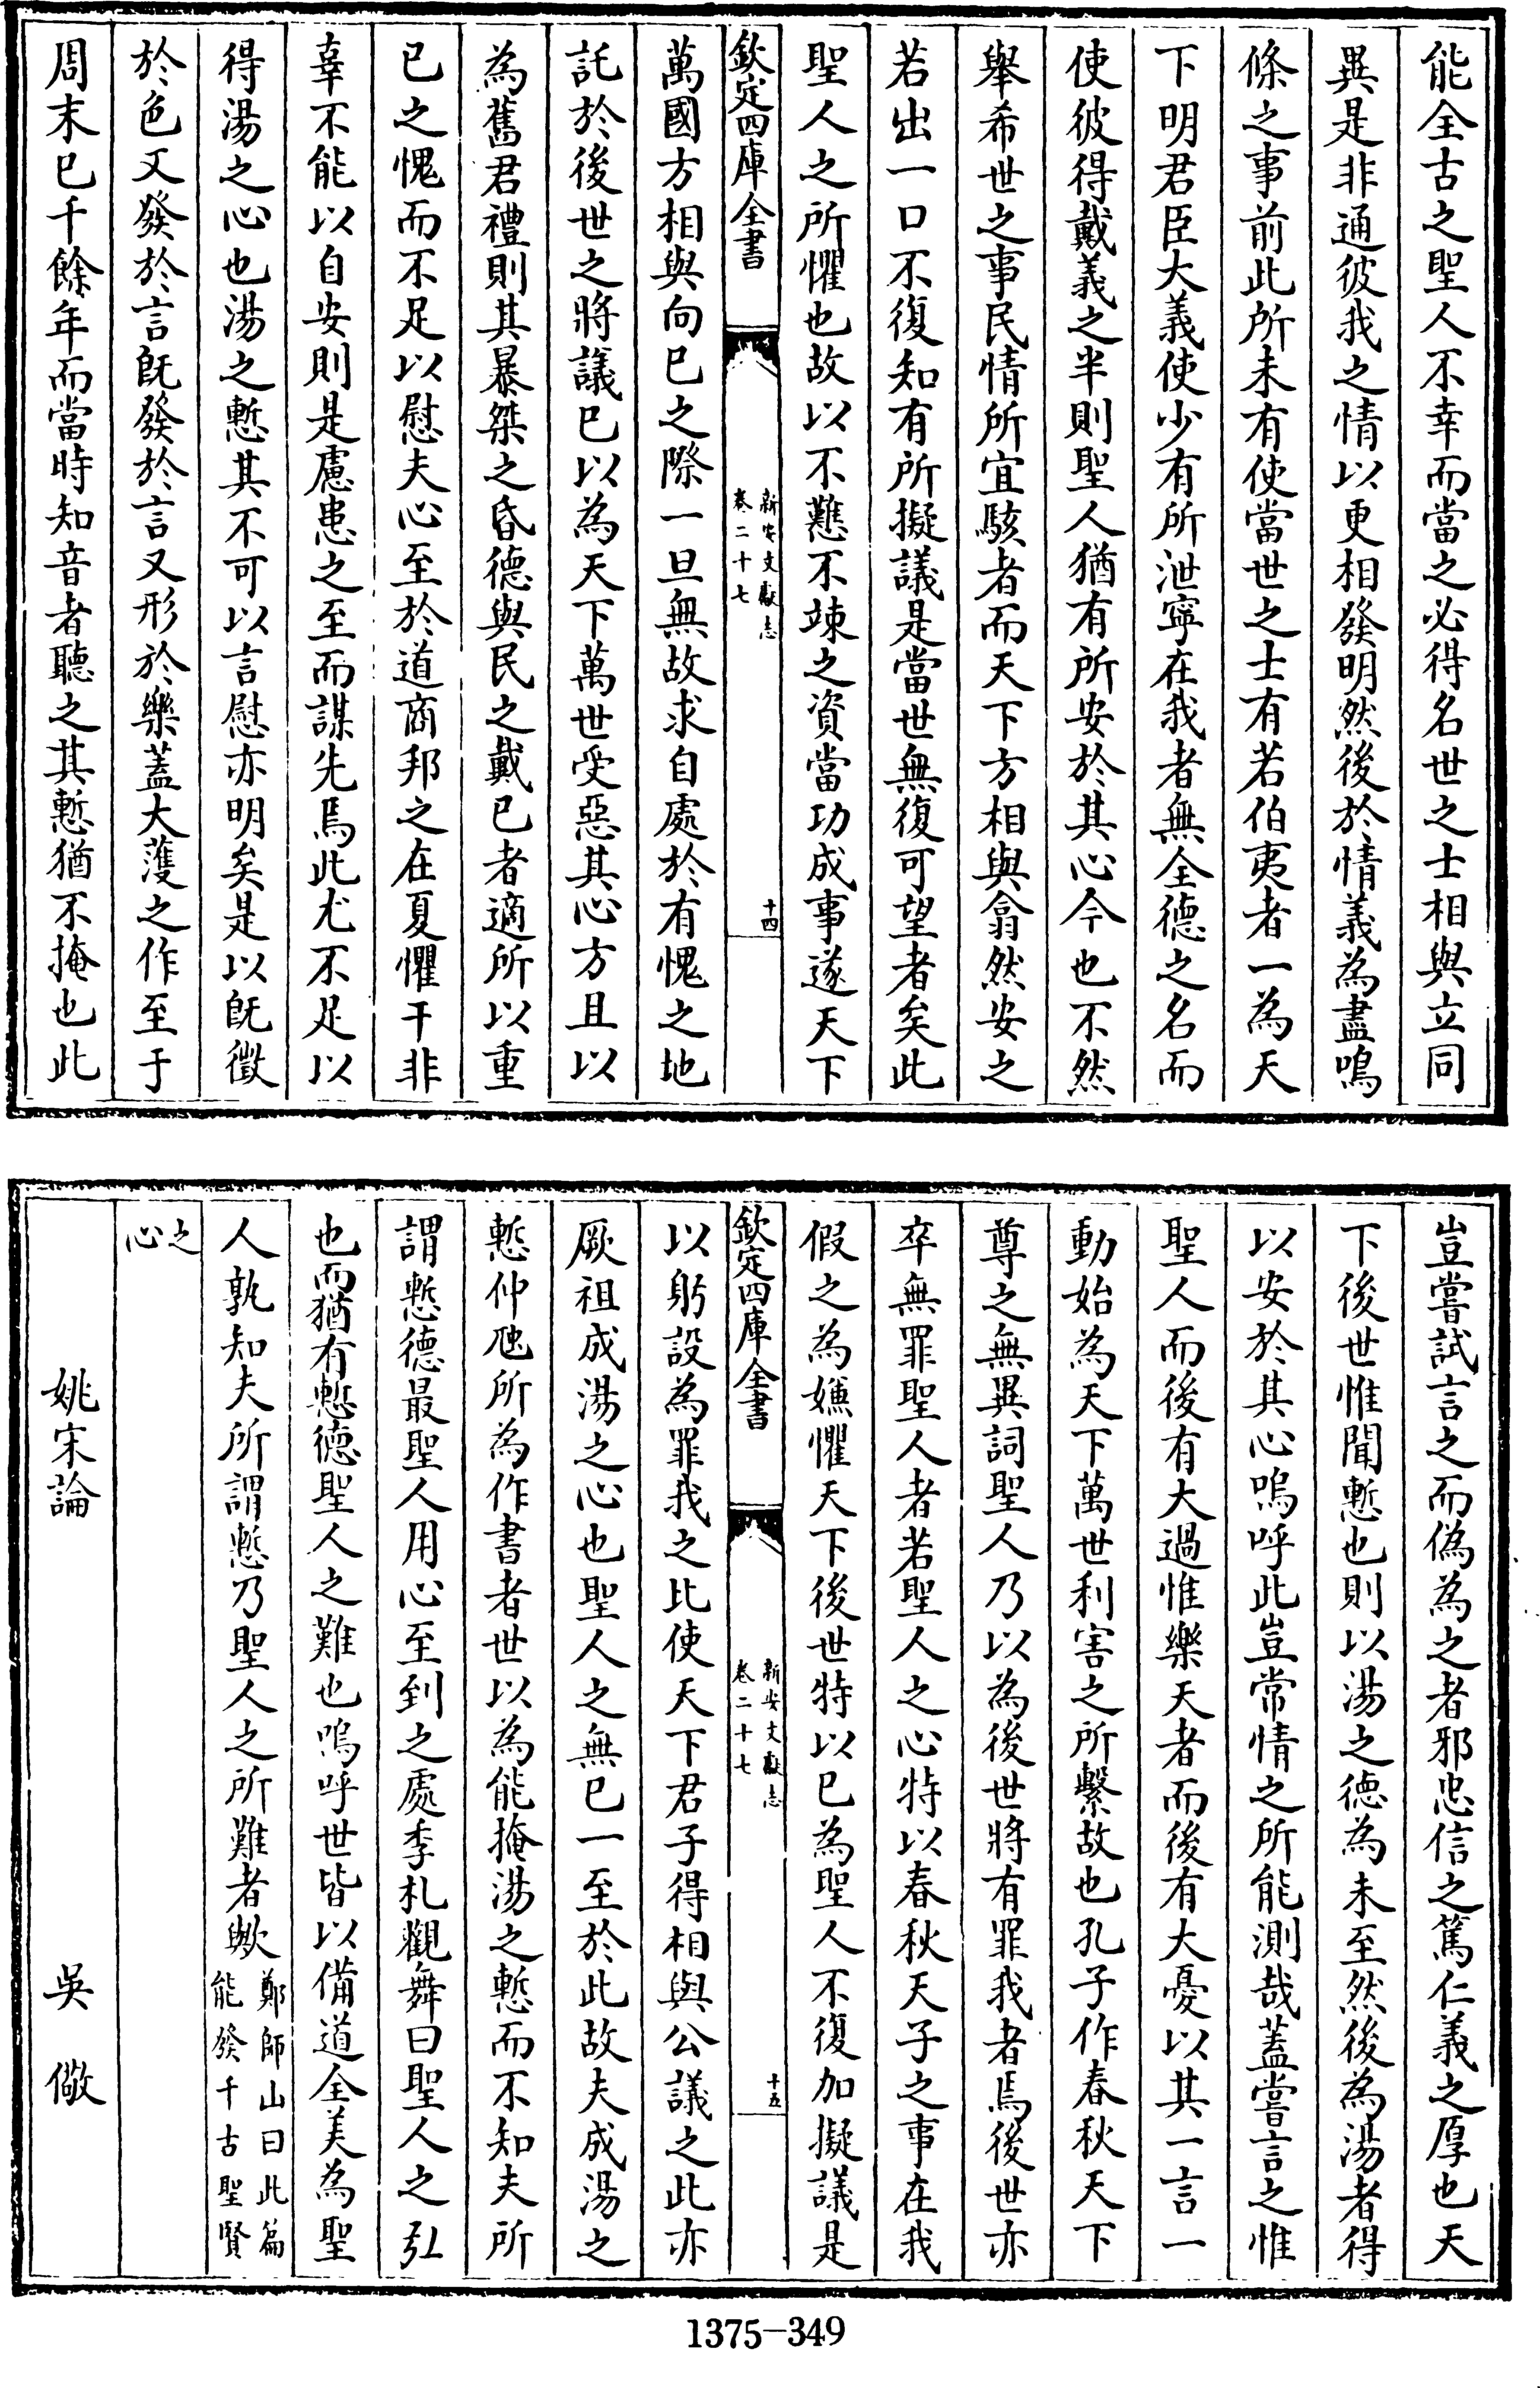 能全古之聖人不幸而當之必得名世之士相與立同
異是非通彼我之情以更相發明然後於情義為盡嗚
條之事前此所未有使當世之士有若伯夷者一為天
下明君臣大義使少有所泄寧在我者無全德之名而
使彼得戴義之半則聖人猶有所安於其心今也不然
舉希世之事民情所宜駭者而天下方相與翕然安之
若出一口不復知有所擬議是當世無復可望者矣此
聖人之所懼也故以不戁不竦之資當功成事遂天下
欽定四庫全書
新安文獻志
卷二十七
十四
萬國方相與向已之際一旦無故求自處於有愧之地
託於後世之將議已以為天下萬世受惡其心方且以
為舊君禮則其暴桀之昏德與民之戴已者適所以重
已之愧而不足以慰夫心至於道商邦之在夏懼干非
辜不能以自安則是慮患之至而謀先焉此尤不足以
得湯之心也湯之慙其不可以言慰亦明矣是以旣徵
於色又發於言旣發於言又形於樂蓋大濩之作至于
周末已千餘年而當時知音者聽之其慙猶不掩也此
豈嘗試言之而偽為之者邪忠信之篤仁義之厚也天
下後世惟聞慙也則以湯之德為未至然後為湯者得
以安於其心嗚呼此豈常情之所能測哉蓋嘗言之惟
聖人而後有大過惟樂天者而後有大憂以其一言一
動始為天下萬世利害之所繫故也孔子作春秋天下
尊之無異詞聖人乃以為後世將有罪我者焉後世亦
卒無罪聖人者若聖人之心特以春秋天子之事在我
假之為嫌懼天下後世特以已為聖人不復加擬議是
欽定四庫全書
新安文獻志
卷二十七
十五
以躬設為罪我之比使天下君子得相與公議之此亦
厥祖成湯之心也聖人之無已一至於此故夫成湯之
慙仲虺所為作書者世以為能掩湯之慙而不知夫所
謂慙德最聖人用心至到之處季札觀舞曰聖人之弘
也而猶有慙德聖人之難也嗚呼世皆以備道全美為聖
人孰知夫所謂慙乃聖人之所難者歟鄭師山曰此篇
能發千古聖賢
之
心
姚宋論 吳儆
1375-349